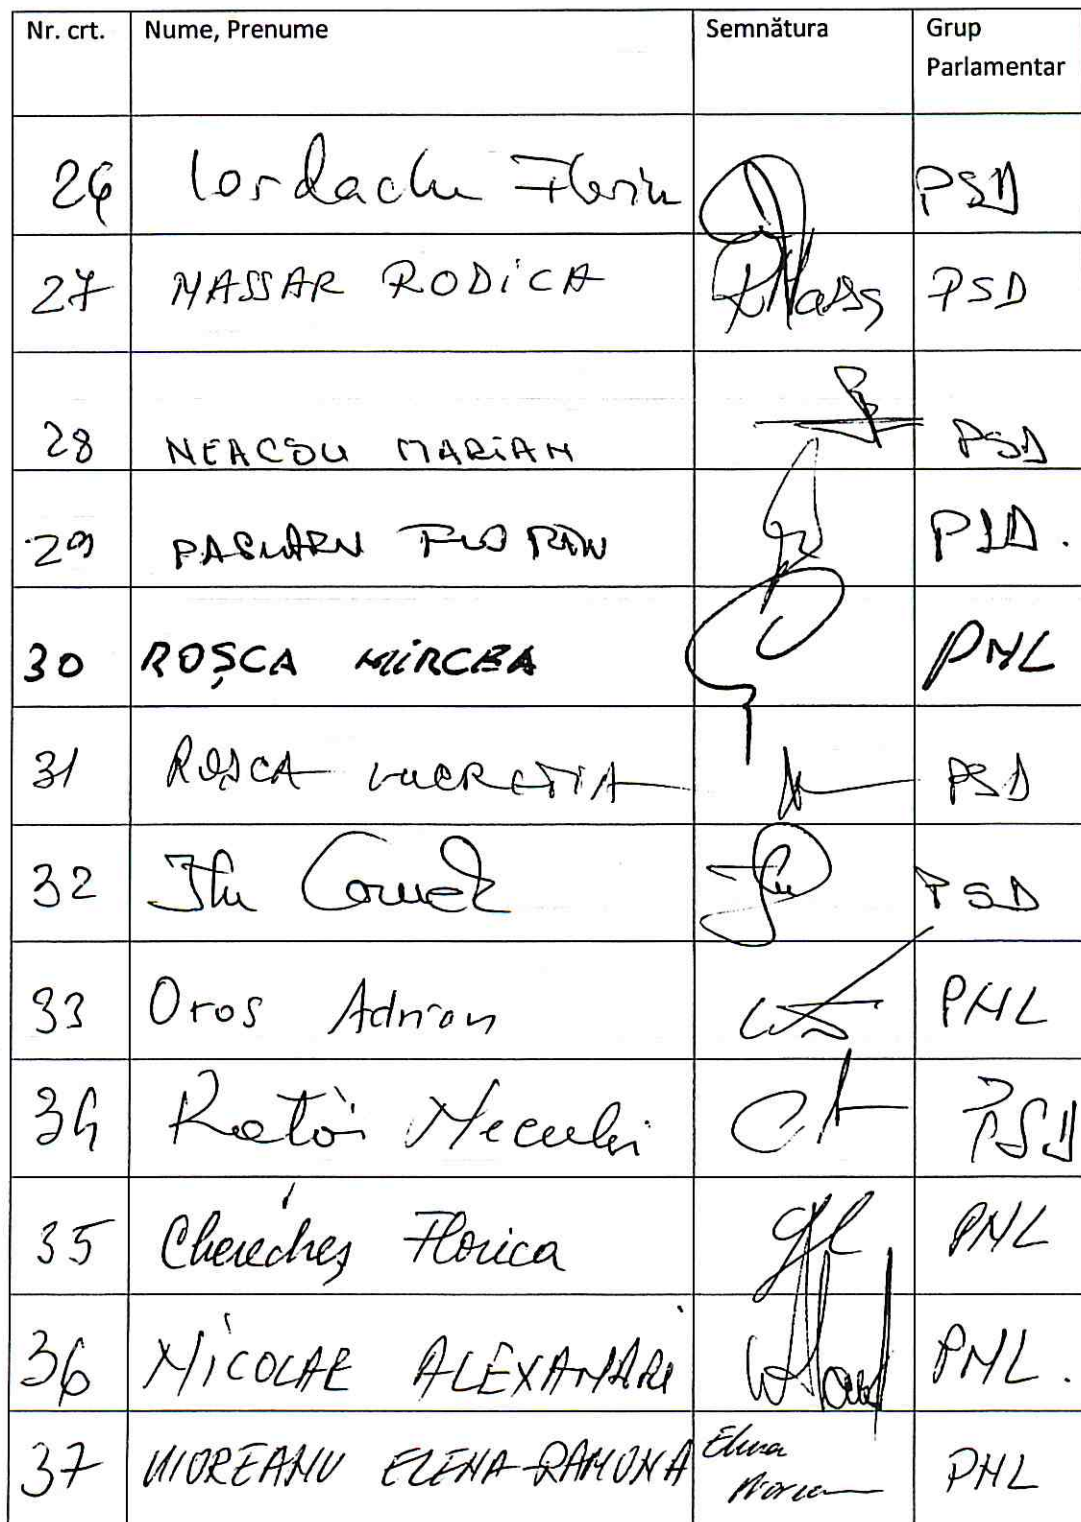 Nr. crt. Nume, Prenume Semnătura Grup
Parlamentar
26 Iordache Florin PSD
27 MASSAR RODICA RMass PSD
28 NEACSU MARIAN PSD
29 PASLARU FLORIN PSD.
30 ROȘCA MIRCEA PNL
31 ROȘCA LUCREȚIA PSD
32 Itu Cornel PSD
33 Oros Adrian PNL
34 PSD
35 Cherecheș Florica PNL
36 NICOLAE ALEXANDRU PNL.
37 UIOREANU ELENA-RAMONA Elena PNL